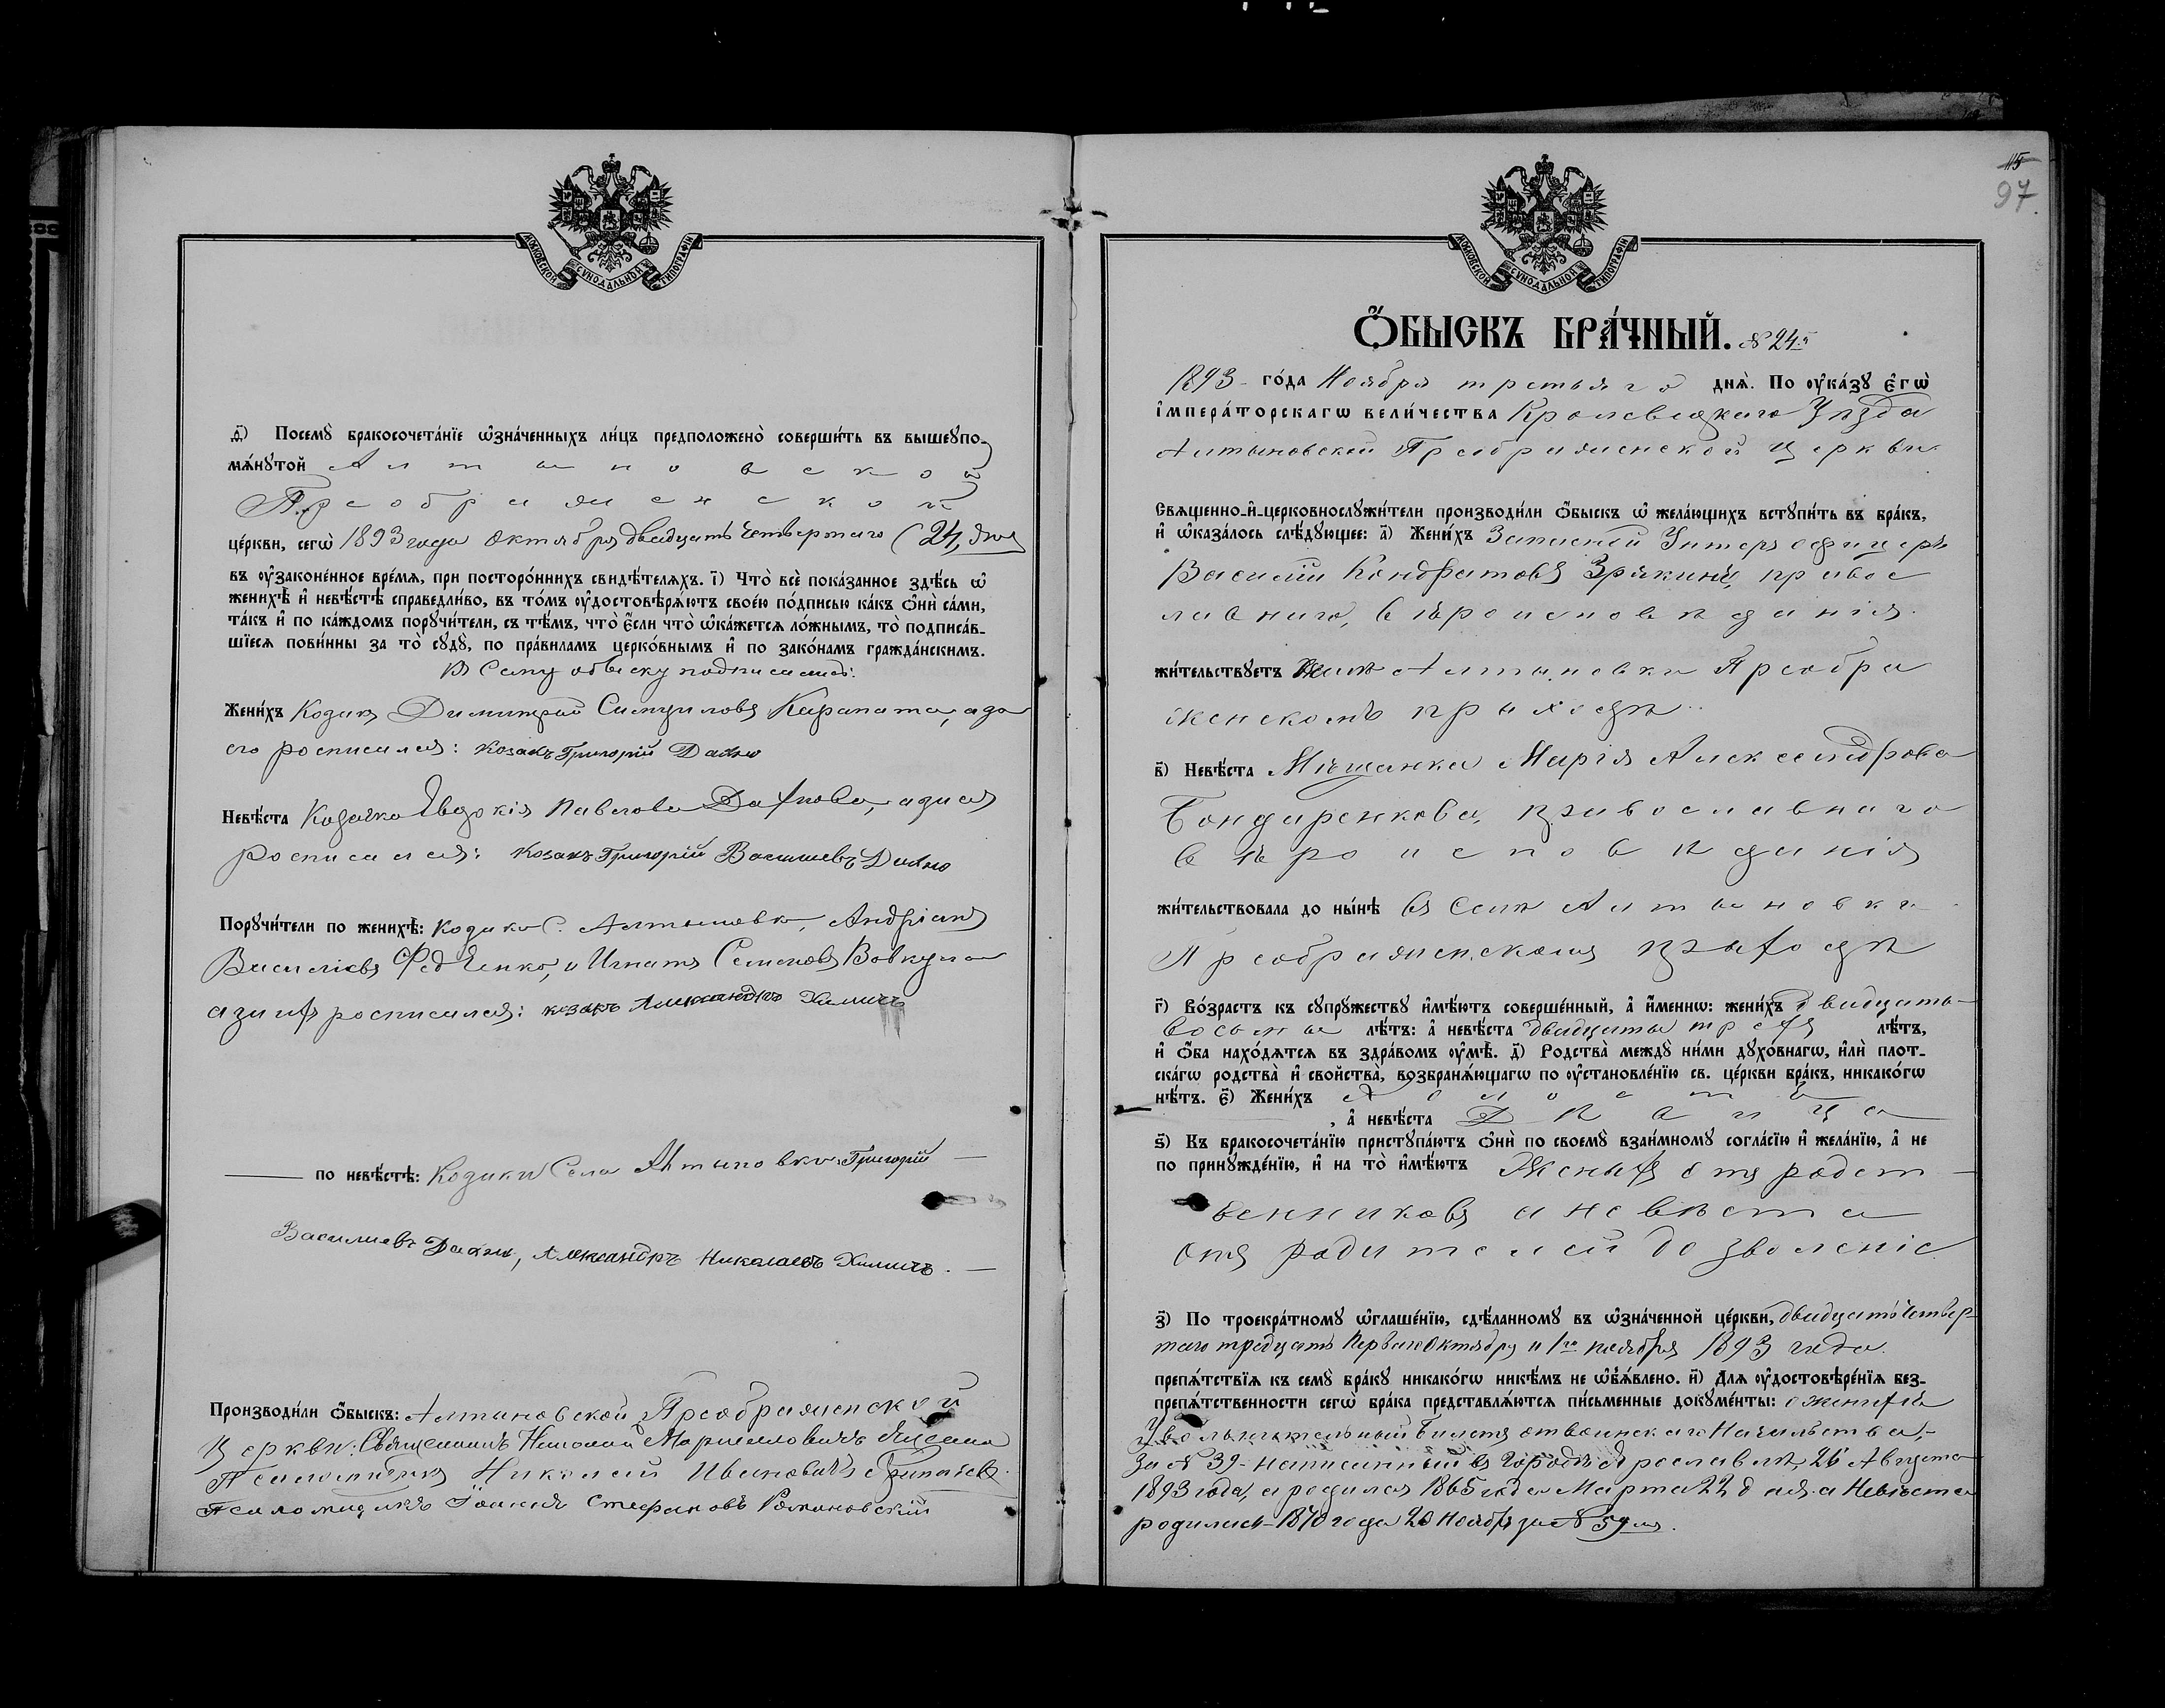 МОСКОВСКОЙ СѴНОДАЛЬНОЙ ТИПОГРАФІИ
д҃і) Посемꙋ̀ бракосочета́нїе ѡ҆зна́ченныхъ ли́цъ предположено̀ соверши́ть въ вышеꙋпо-
мѧ́нꙋтой Алтыновской
Преображенской
це́ркви, сегѡ̀ 1893 года Октября двадцать четвертаго (24, дня
въ ᲂу҆зако́ненное вре́мѧ, при посторо́ннихъ свидѣ́телѧхъ. і҃) Что̀ всѐ пока́занное здѣ́сь ѡ҆
женихѣ̀ и҆ невѣ́стѣ справедли́во, въ то́мъ ᲂу҆достовѣрѧ́ютъ свое́ю по́дписью ка́къ ѻ҆нѝ са́ми,
та́къ и҆ по ка́ждомъ порꙋчи́тели, съ тѣ́мъ, что̀ є҆́сли что̀ ѡ҆ка́жетсѧ ло́жнымъ, то̀ подписа́в-
шїесѧ пови́нны за то̀ сꙋдꙋ̀, по пра́виламъ церко́внымъ и҆ по зако́намъ гражда́нскимъ.
К Сему обыску подписались:
Жени́хъ Козакъ Димитрий Самуиловъ Карапата, а за
его росписался: козакъ Григорій Дахно
Невѣ́ста Козачка Евдокія Павлова Дахнова, а за ея
росписался: Козакъ Григорій Васильевъ Дахно
Порꙋчи́тели по женихѣ̀: Козаки С. Алтыновки, Андріанъ
Василіевъ Федченко, и Игнатъ Семеновъ Вовкула
а за ихъ росписался: козакъ Александръ Химичъ
по невѣ́стѣ: Козаки Села Алтыновки Григорій
Васильевъ Дахно, Александръ Николаевъ Химичъ.
Производи́ли ѻ҆́быскъ: Алтыновской Преображенской
Церкви: Священникъ Николай
Псаломщикъ Николай Ивановичъ
Псаломщикъ Іоаннъ Стефановъ Романовскій
115
97.
МОСКОВСКОЙ СѴНОДАЛЬНОЙ ТИПОГРАФІИ
Ѻ҆́БЫСКЪ БРА́ЧНЫЙ. № 24й
1893 го́да Ноября третьяго днѧ̀. По ᲂу҆ка́зꙋ є҆гѡ̀
і҆мпера́торскагѡ вели́чества Кролевецкаго Уѣзда
Алтыновской Преображенской церкви
Свѧщенно-и҆-церковнослꙋжи́тели производи́ли ѻ҆́быскъ ѡ҆ жела́ющихъ встꙋпи́ть въ бра́къ,
и҆ ѡ҆каза́лось слѣ́дꙋющее: а҃) Жени́хъ Запасный Унтеръ офицеръ
Василій Кондратовъ Зрякинъ, правос
лавнаго, вѣроисповѣданія.
жи́тельствꙋетъ селѣ Алтыновки Преобра
женскомъ приходѣ
в҃) Невѣ́ста Мѣщанка Марія Александрова
Бондаренкова, православнаго
вѣроисповѣданія
жи́тельствовала до ны́нѣ въ селѣ Алтыновки
Преображенскомъ приходѣ
г҃) Во́зрастъ къ сꙋпрꙋ́жествꙋ и҆мѣ́ютъ соверше́нный, а҆ и҆́меннѡ: жени́хъ двадцать
восьмы лѣ́тъ: а҆ невѣ́ста двадцаты трехъ лѣ́тъ,
и҆ ѻ҆́ба нахо́дѧтсѧ въ здра́вомъ ᲂу҆мѣ̀. д҃) Родства̀ междꙋ̀ ни́ми дꙋхо́внагѡ, и҆лѝ плот-
ска́гѡ родства̀ и҆ свойства̀, возбранѧ́ющагѡ по ᲂу҆становле́нїю св. це́ркви бра́къ, никако́гѡ
нѣ́тъ. є҃) Жени́хъ холостъ
, а҆ невѣ́ста Дѣвица
ѕ҃) Къ бракосочета́нїю пристꙋпа́ютъ ѻ҆нѝ по своемꙋ̀ взаи́мномꙋ согла́сїю и҆ жела́нїю, а҆ не
по принꙋжде́нїю, и҆ на то̀ и҆мѣ́ютъ Женихъ отъ родст
венниковъ а невѣста
отъ родителей дозволеніе
з҃) По троекра́тномꙋ ѡ҆глаше́нїю, сдѣ́ланномꙋ въ ѡ҆зна́ченной це́ркви, двадцать четвер-
таго тридцать перваго Октября и 1го ноября 1893 года.
препѧ́тствїѧ къ семꙋ̀ бра́кꙋ никако́гѡ никѣ́мъ не ѡ҆б̾ѧ́влено. и҃) Длѧ ᲂу҆достовѣре́нїѧ без-
препѧ́тственности сегѡ̀ бра́ка представлѧ́ютсѧ пи́сьменные докꙋме́нты: о женихѣ
Увольнительный билетъ от воинскаго Начальства,
за № 39 написанный въ Городѣ Ярославлѣ, 26 Августа
1893 года, а родился 1865 года Марта 22 дня. а Невѣста
родилась 1870 года 20 Ноября за №